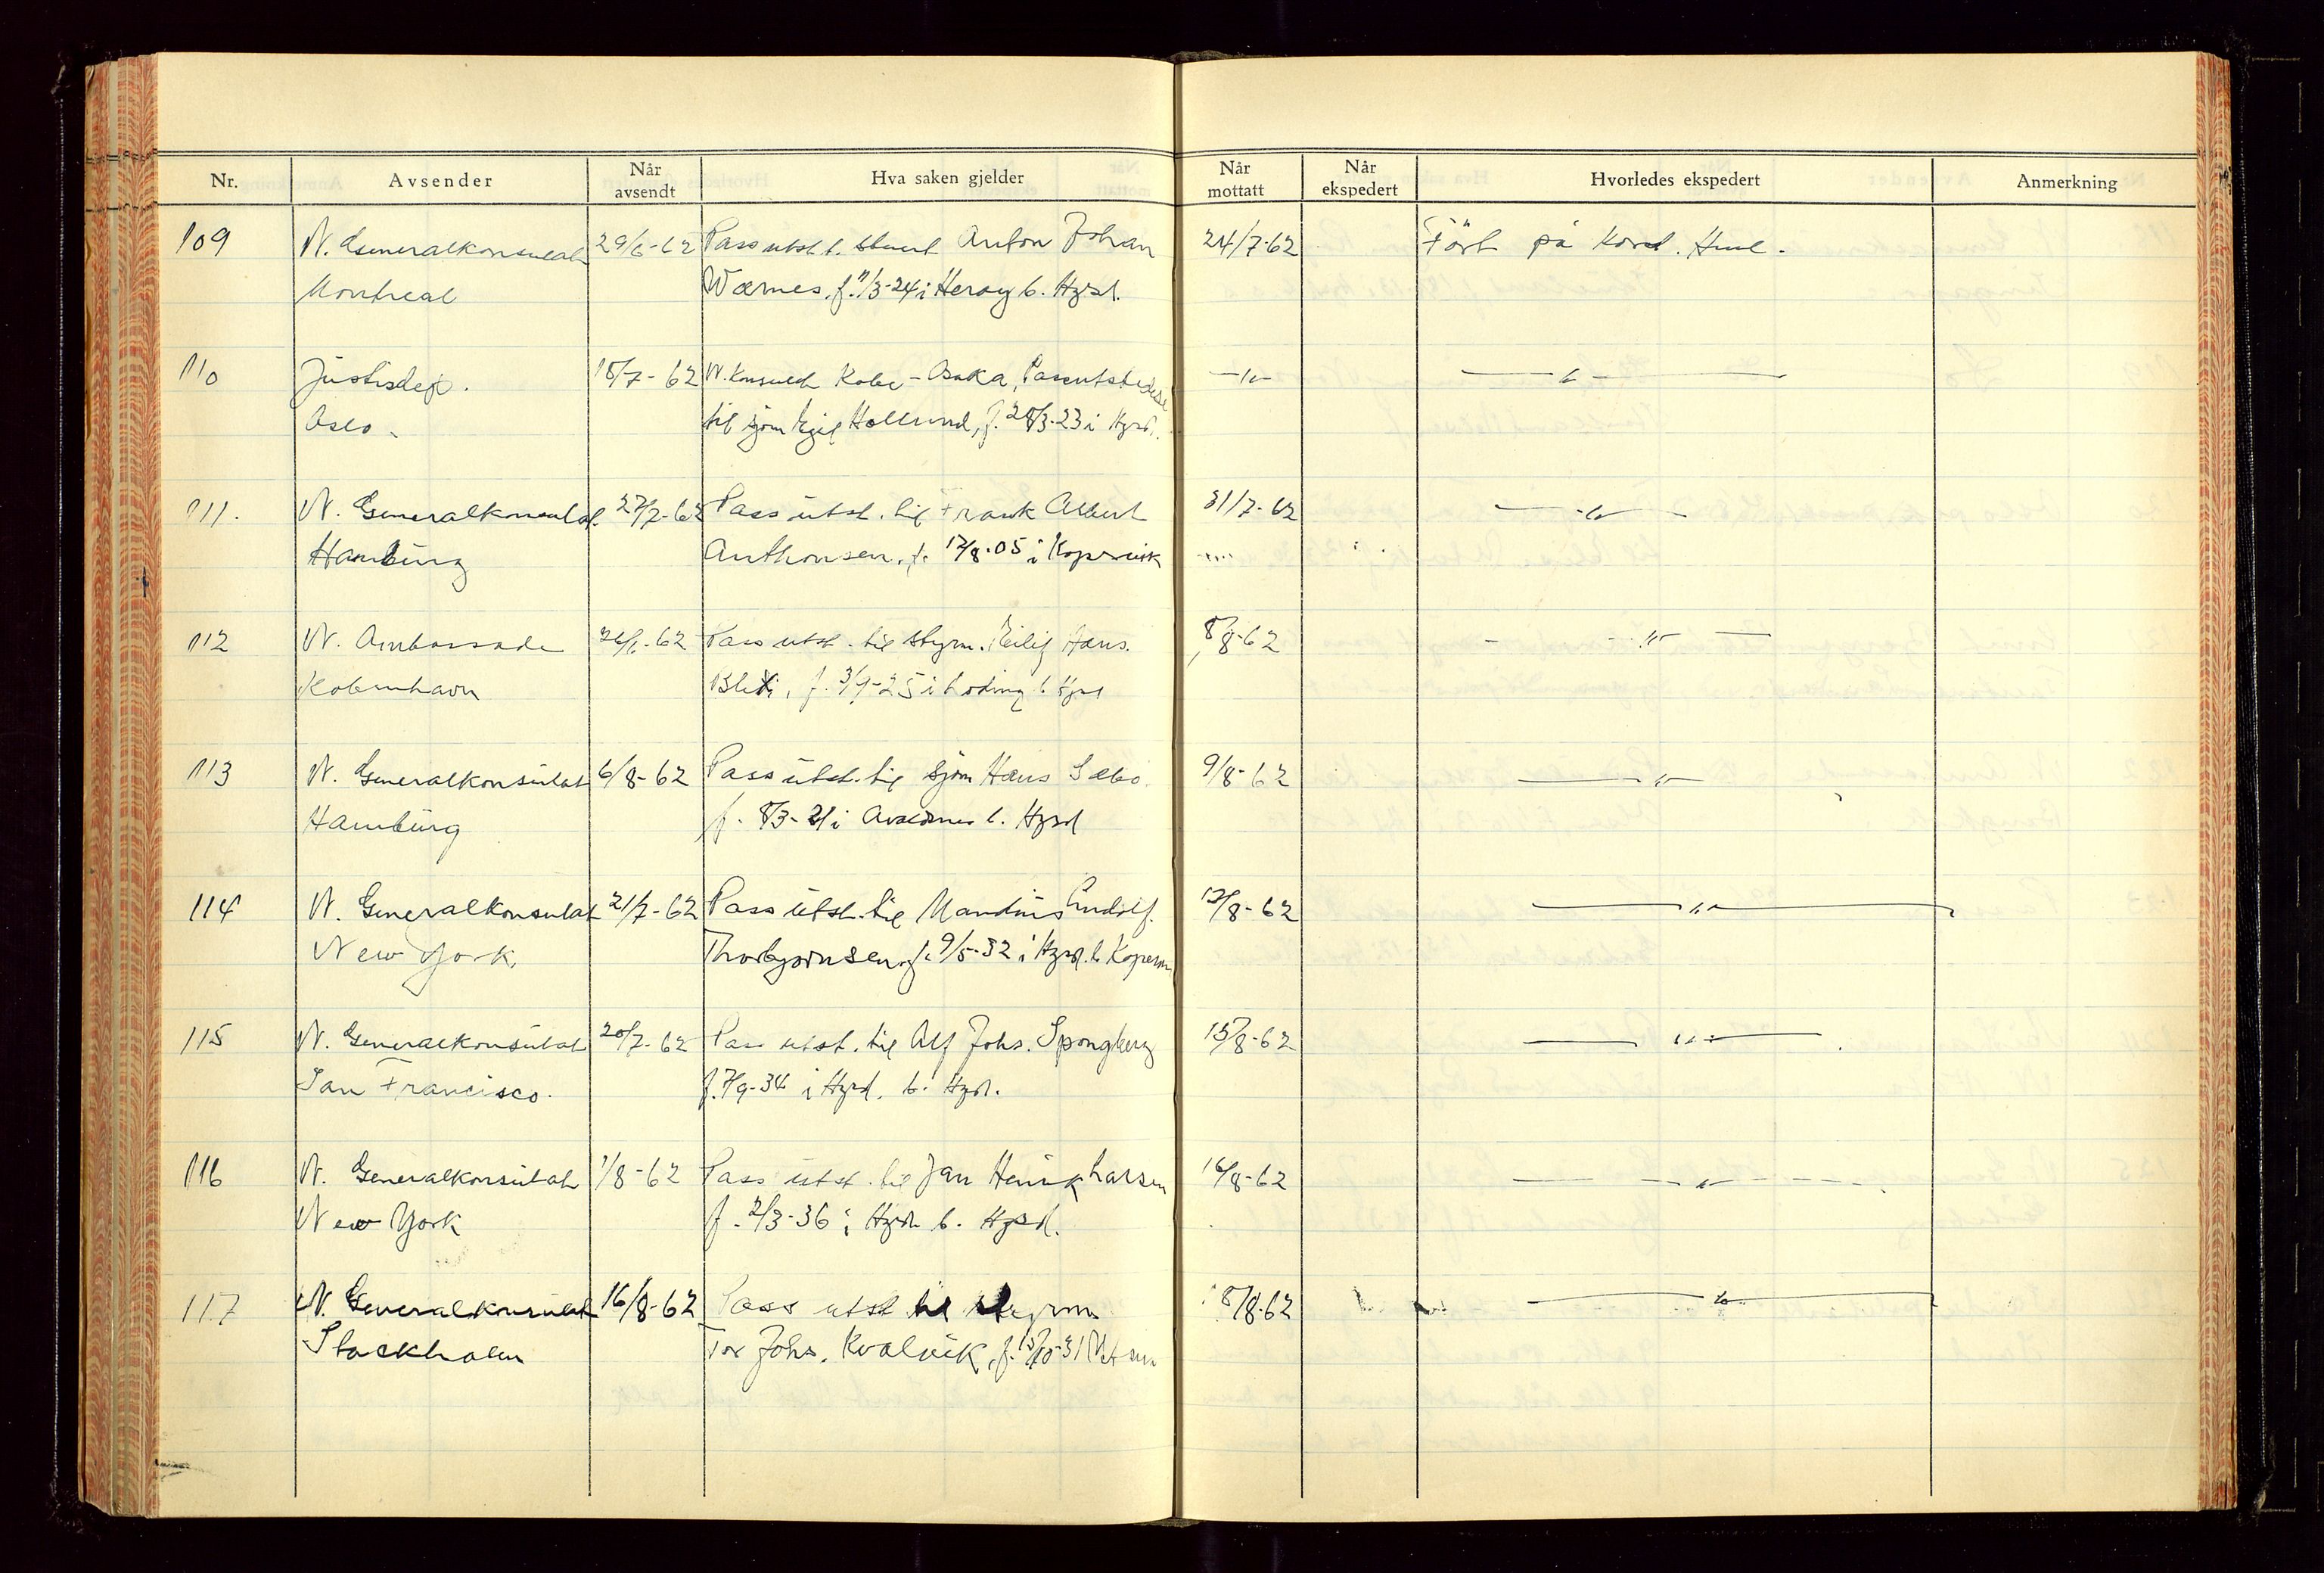 Nr. Avsender Når avsendt Hva saken gjelder Når mottatt Når ekspedert Hvorledes ekspedert Anmerkning
109 N. Generalkonsulat 29/6-62 Pass utst. t. stuert Anton Johan 24/7-62 Ført på kond. Hms.
Montreal Wærnes, f. 11/3-24 i Herøy b. Hgsd.
110 Justisdep. 18/7-62 N. Konsulat Kobe - Osaka, Passutstedelse —"— —"—
Oslo. til sjøm Egil Hollund, f. 28/3-23 i Hgsd.
111. N. Generalkonsulat. 27/7-62 Pass utst. til Frank Albert 31/7-62 —"—
Hamburg Anthonsen, f. 17/8-05 i Kopervik
112 N. Ambassade 62 Pass utst. til styrm. Eilif Hans. 8/8-62 —"—
København f. 25 i b. Hgsd
113 N. Generalkonsulat 6/8-62 Pass utst. til sjøm Hans Sæbø. 9/8-62 —"—
Hamburg f. 8/3-21 i Avaldsnes b. Hgsd
114 N. Generalkonsulat 21/7-62 Pass utst. til Mandius Rudolf. 13/8-62 —"—
New York Thorbjørnsen, f. 9/5-32 i Hgsd. b. Koperv.
115 N. Generalkonsulat 20/7-62 Pass utst. til Alf Johs. Spongberg 15/8-62 —"—
San Francisco. f. 7/9-34 i Hgsd. b. Hgsd.
116 N. Generalkonsulat 7/8-62 Pass utst. til Jan Henrik Larsen 16/8-62 —"—
New York f. 2/3-36 i Hgsd b. Hgsd.
117 N. Generalkonsulat 16/8-62 Pass utst til styrm. 18/8-62 —"—
Stockholm Tor Johs. Kvalvik, f. 15/10-31